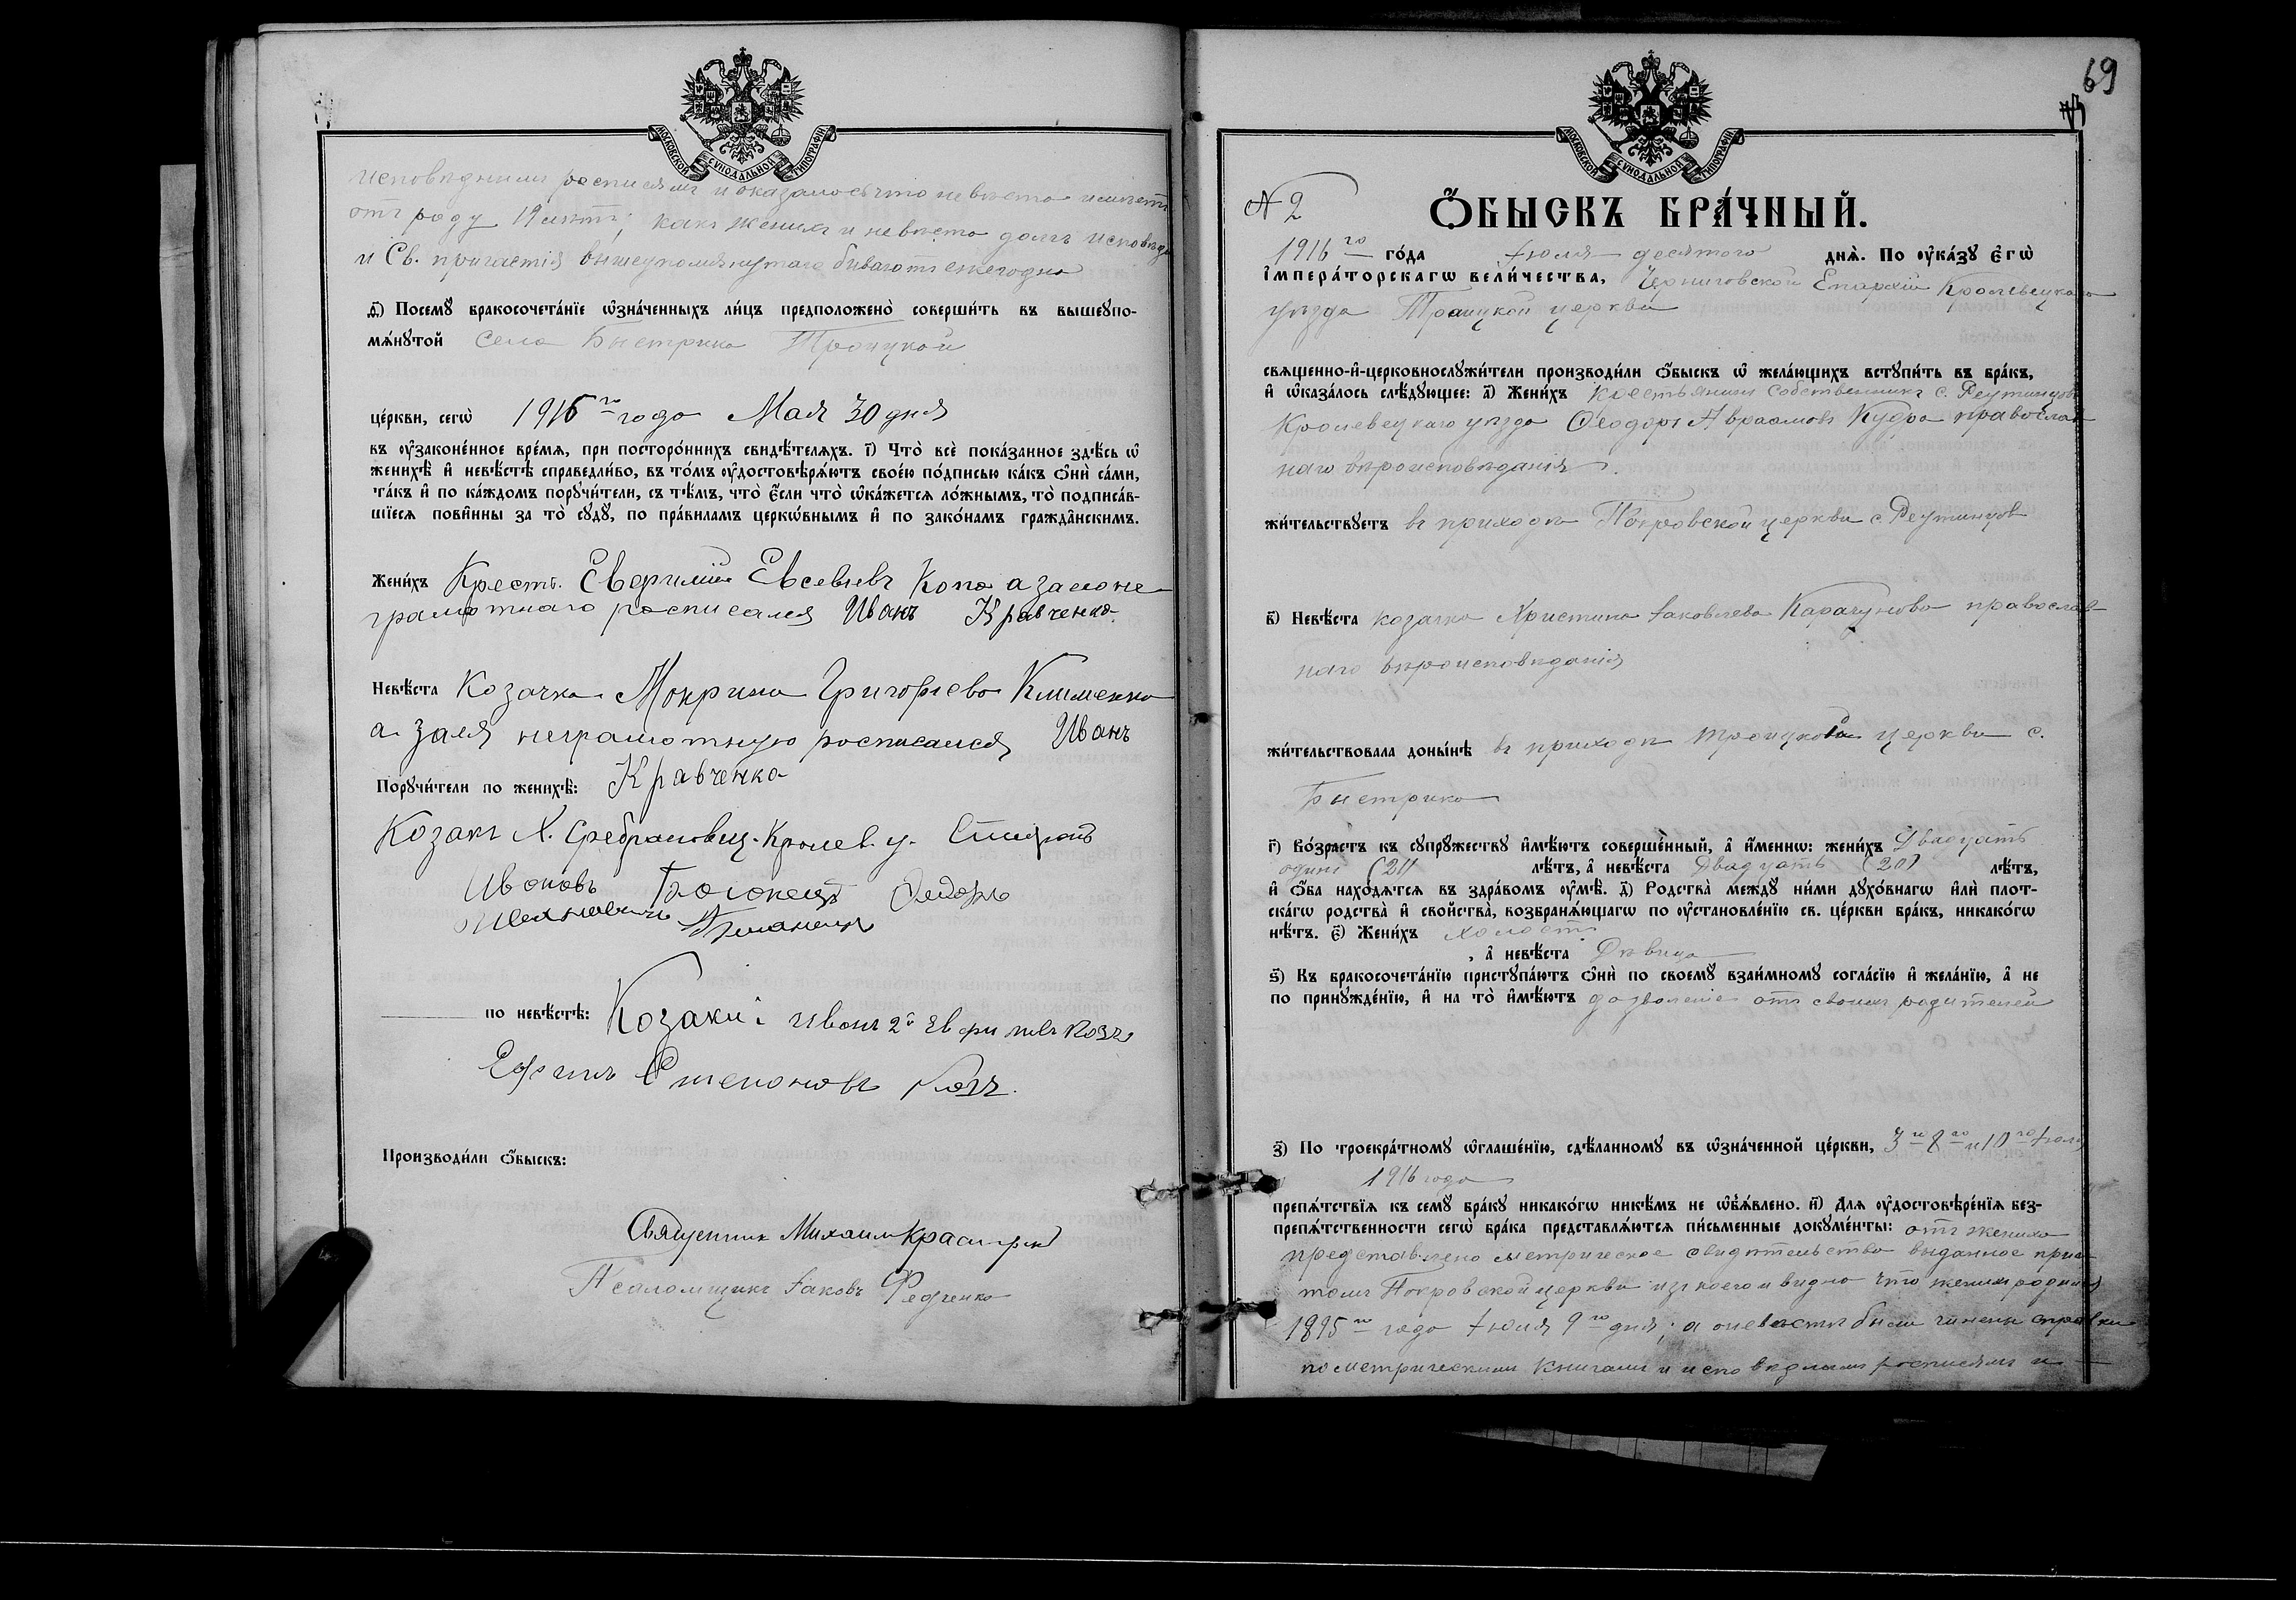 МОСКОВСКОЙ СУНОДАЛЬНОЙ ТИПОГРАФІИ
исповѣднымъ росписямъ и оказалось что невѣста имѣетъ
отъ роду 19 лѣтъ; какъ женихъ и невѣста долгъ исповѣди
и Св. причастія вышеупомянутаго бываютъ ежегодно
Посемꙋ̀ бракосочета́нїе ѡ҆зна́ченныхъ ли́цъ предположено̀ соверши́ть въ вышеꙋпо-
мѧ́нꙋтой села Быстрика Троицкой
це́ркви, сегѡ̀ 1916го года Мая 30 дня
въ ᲂу҆зако́ненное вре́мѧ, при посторо́ннихъ свидѣ́телѧхъ. і҃) Что̀ всѐ пока́занное здѣ́сь ѡ҆
женихѣ̀ и҆ невѣ́стѣ справедли́во, въ то́мъ ᲂу҆достовѣрѧ́ютъ свое́ю по́дписью ка́къ ѻ҆нѝ са́ми,
та́къ и҆ по ка́ждомъ порꙋчи́тели, съ тѣ́мъ, что̀ є҆́сли что̀ ѡ҆ка́жетсѧ ло́жнымъ, то̀ подписа́в-
шїесѧ пови́нны за то̀ сꙋдꙋ̀, по пра́виламъ церко́внымъ и҆ по зако́намъ гражда́нскимъ.
Жени́хъ Крест. Евфимій Евсевіевъ Копа а за него не
грамотнаго росписался Иванъ Кравченко.
Невѣ́ста Козачка Мокрина Григоріева Клименко
а за нея неграмотную росписался Иванъ
Порꙋчи́тели по женихѣ̀: Кравченко
Козакъ Х. Кролев. у.
по невѣ́стѣ: Козаки:
Степановъ
Производи́ли ѻ҆́быскъ:
Священникъ Михаилъ
Псаломщикъ Іаковъ Федченко
69
МОСКОВСКОЙ СУНОДАЛЬНОЙ ТИПОГРАФІИ
№ 2
Ѻ҆́БЫСКЪ БРА́ЧНЫЙ.
1916го го́да Іюля десятаго днѧ̀. По ᲂу҆ка́зꙋ є҆гѡ̀
і҆мпера́торскагѡ вели́чества, Черниговской Епархіи Кролевецкаго
уѣзда Троицкой церкви
свѧще́нно-и҆-церковнослꙋжи́тели производи́ли ѻ҆́быскъ ѡ҆ жела́ющихъ встꙋпи́ть въ бра́къ,
и҆ ѡ҆каза́лось слѣ́дꙋющее: а҃) Жени́хъ крестьянинъ собственникъ с. Реутинцовъ
Кролевецкаго уѣзда Ѳеодоръ Авраамовъ Кудра православ
наго вѣроисповѣданія.
жи́тельствꙋетъ въ приходѣ Покровской церкви с. Реутинцовъ
в҃) Невѣ́ста козачка Христина Іаковлева Карачунова православ
наго вѣроисповѣданія
жи́тельствовала доны́нѣ въ приходѣ Троицкой церкви с.
Быстрика
г҃) Во́зрастъ къ сꙋпрꙋ́жествꙋ и҆мѣ́ютъ соверше́нный, а҆ и҆́меннѡ: жени́хъ Двадцать
одинъ (21) лѣ́тъ, а҆ невѣ́ста Двадцать (20) лѣ́тъ,
и҆ ѻ҆́ба нахо́дѧтсѧ въ здра́вомъ ᲂу҆мѣ̀. д҃) Родства̀ междꙋ̀ ни́ми дꙋхо́внагѡ и҆лѝ пло́т-
скагѡ родства̀ и҆ свойства̀, возбранѧ́ющагѡ по ᲂу҆становле́нїю св. це́ркви бра́къ, никако́гѡ
нѣ́тъ. є҃) Жени́хъ холостъ
, а҆ невѣ́ста Дѣвица
ѕ҃) Къ бракосочета́нїю пристꙋпа́ютъ ѻ҆нѝ по своемꙋ̀ взаи́мномꙋ согла́сїю и҆ жела́нїю, а҆ не
по принꙋжде́нїю, и҆ на то̀ и҆мѣ́ютъ дозволеніе отъ своихъ родителей
з҃) По троекра́тномꙋ ѡ҆глаше́нїю, сдѣ́ланномꙋ въ ѡ҆зна́ченной це́ркви, 3го 8го и 10го Іюля
1916 года
препѧ́тствїѧ къ семꙋ̀ бра́кꙋ никако́гѡ никѣ́мъ не ѡ҆б̾ѧ́влено. и҃) Длѧ ᲂу҆достовѣре́нїѧ без-
препѧ́тственности сегѡ̀ бра́ка представлѧ́ютсѧ пи́сьменные докꙋме́нты: отъ жениха
представлено метрическое свидѣтельство выданное прич
томъ Покровской церкви изъ коего и видно что женихъ родился
1895го года Іюля 9го дня; а о невѣстѣ были чинены справки
по метрическимъ книгамъ и исповѣднымъ росписямъ и